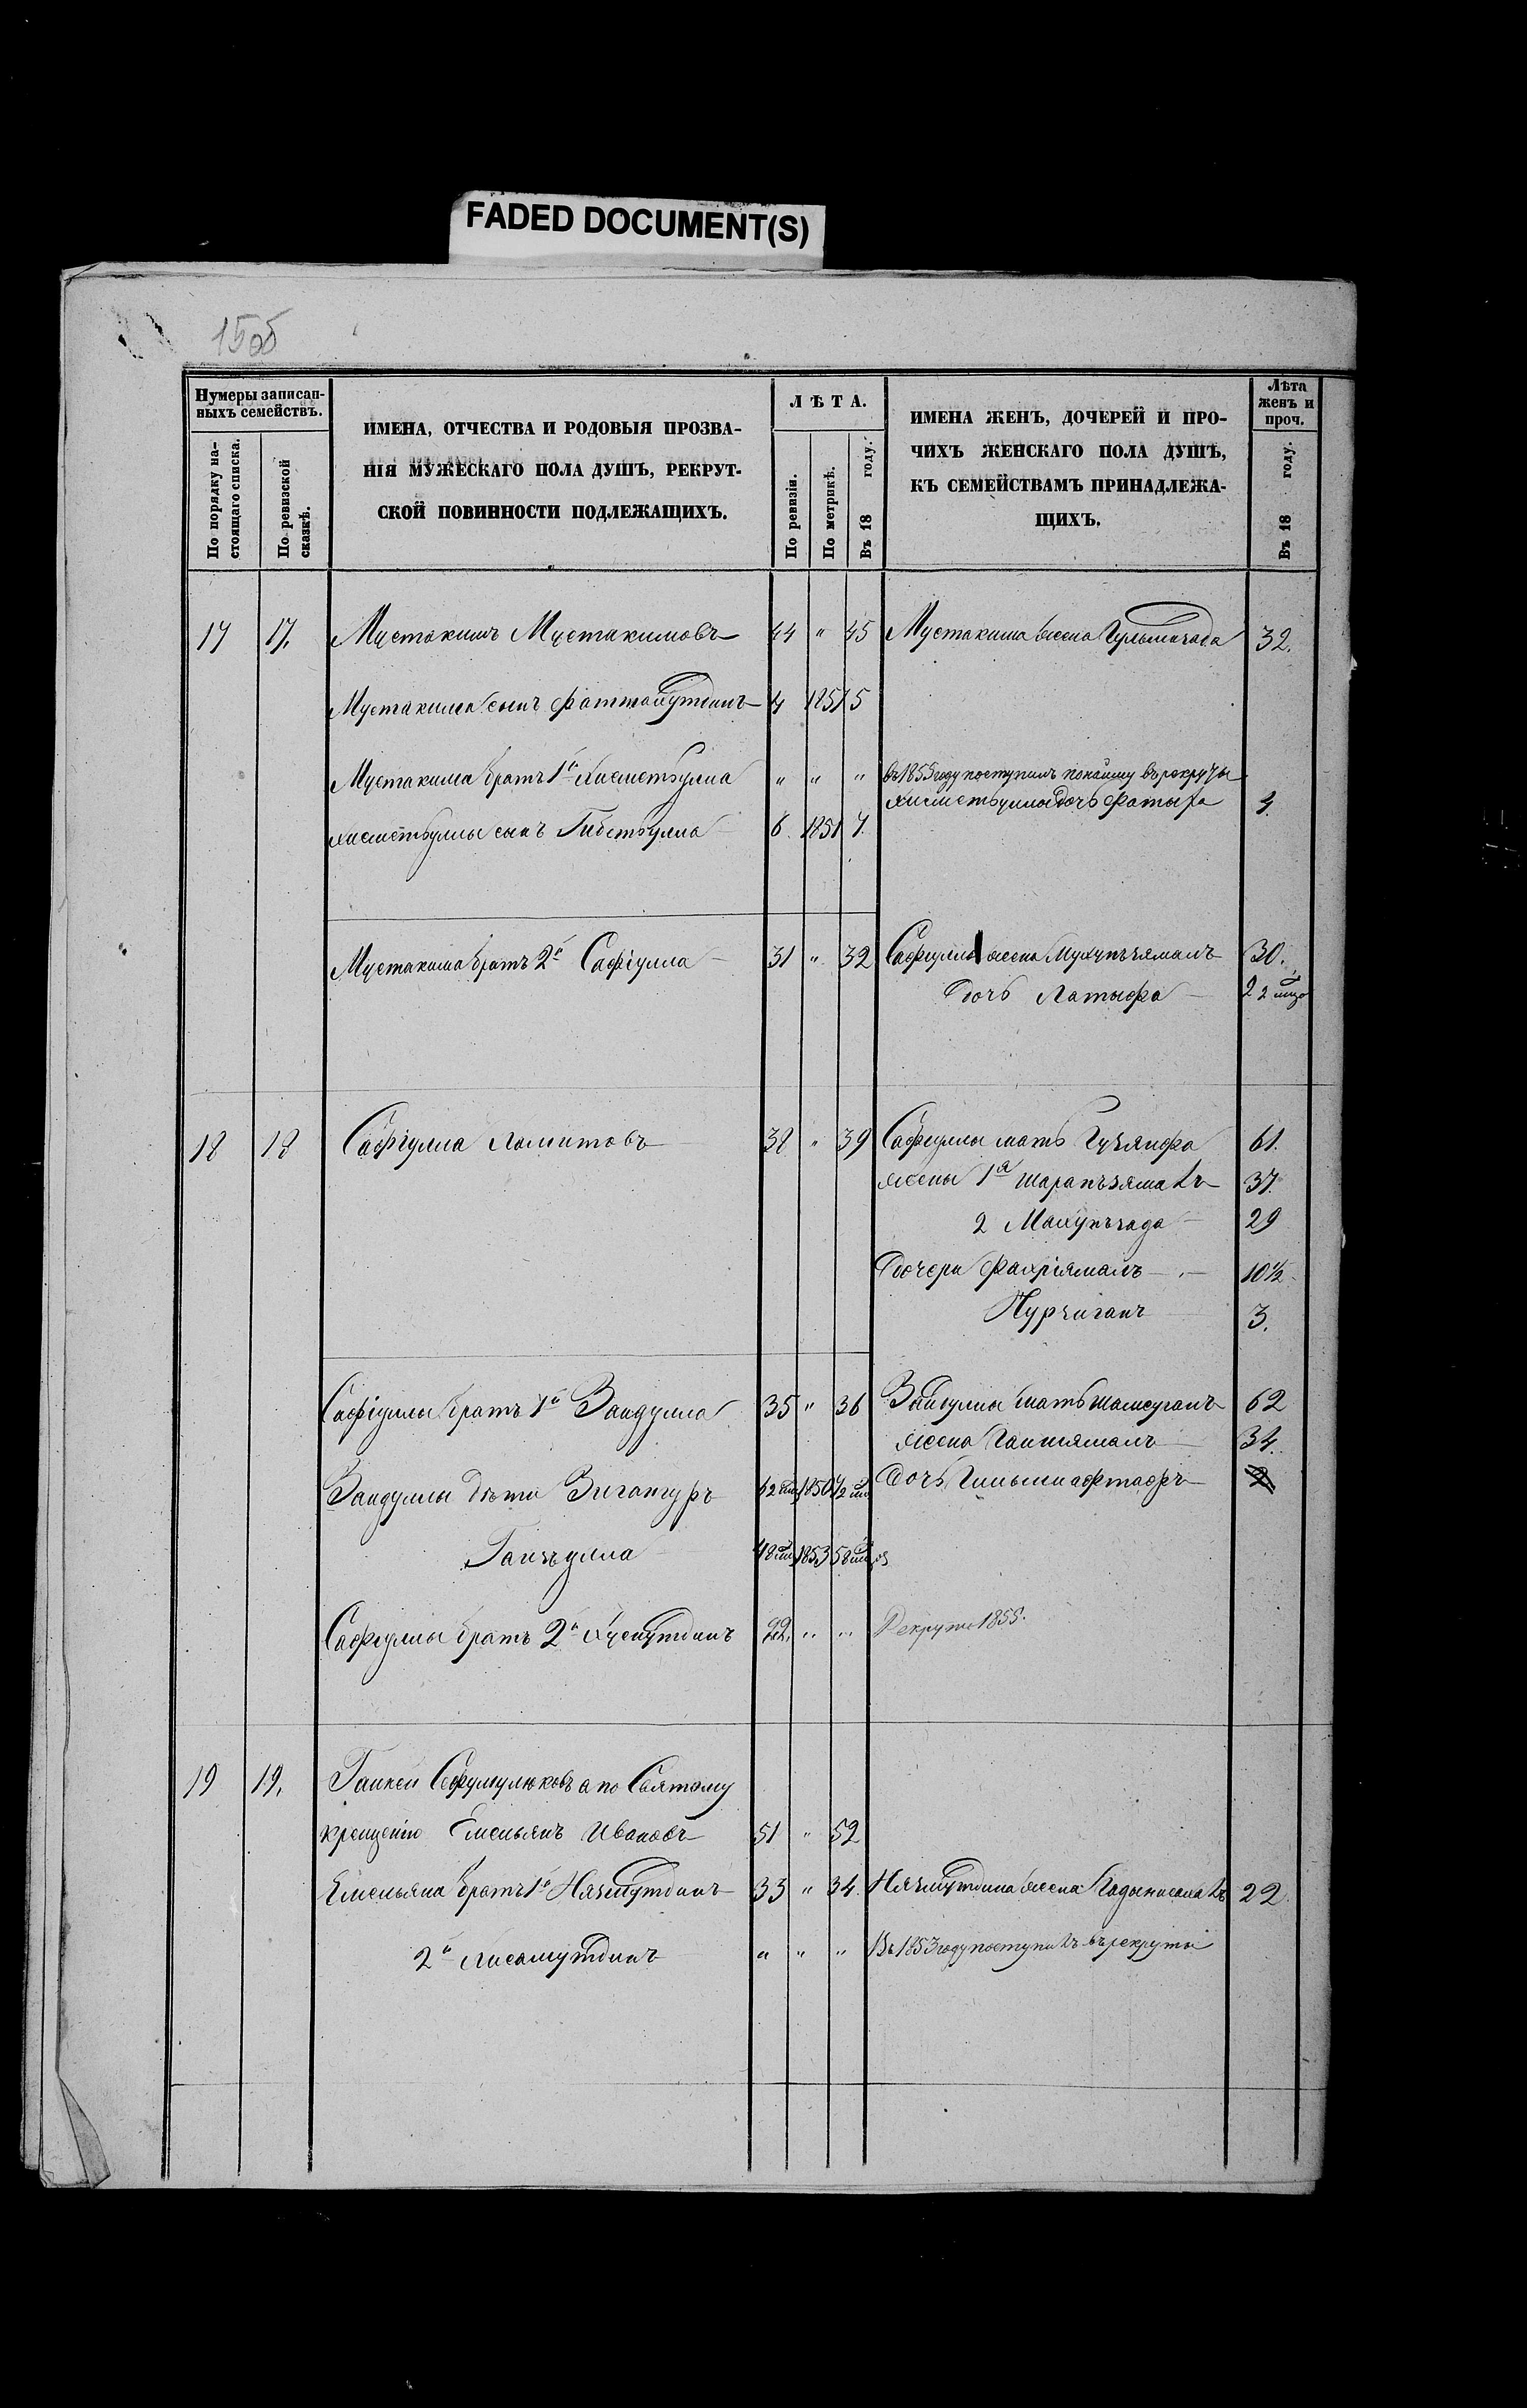 FADED DOCUMENT(S)
15об
Нумеры записан-
ныхъ семействъ.
По порядку на-
стоящаго списка.
По ревизской
сказкѣ.
ИМЕНА, ОТЧЕСТВА И РОДОВЫЯ ПРОЗВА-
НІЯ МУЖЕСКАГО ПОЛА ДУШЪ, РЕКРУТ-
СКОЙ ПОВИННОСТИ ПОДЛЕЖАЩИХЪ.
ЛѢТА.
По ревизіи.
По метрикѣ.
Въ 18 году.
ИМЕНА ЖЕНЪ, ДОЧЕРЕЙ И ПРО-
ЧИХЪ ЖЕНСКАГО ПОЛА ДУШЪ,
КЪ СЕМЕЙСТВАМЪ ПРИНАДЛЕЖА-
ЩИХЪ.
Лѣта
женъ и
проч.
Въ 18 году.
17 17. Мустакимъ Мустакимовъ 44 " 45 Мустакима жена 32.
Мустакима сынъ Фаттахутдинъ 4 1851 5
Мустакима братъ 1й Хисметьулла " " " въ 1855 году поступилъ по найму въ рекруты
Хисметьуллы дочь 4.
Хисметьуллы сынъ Гибетьулла 6. 1851 7.
Мустакима братъ 2й Сафіулла 31 " 32 Сафіуллы жена 30.
дочь Латыфа 2 2 мѣс
18 18 Сафіулла 38 " 39 Сафіуллы мать 61.
жены 1я 37.
2 29
дочери Фахріямалъ 10½
Нурчиганъ 3.
Сафіуллы братъ 1й Заидулла 35 " 36 Заидуллы мать Шамсуганъ 62
жена 34.
Заидуллы дѣти Зигангуръ 1850 дочь 2
1853
Сафіуллы братъ 2й Хуснутдинъ 22. " " Рекрутъ 1855.
19 19. а по Святому
крещенію Емельянъ Ивановъ 51 " 52
Емельяна братъ 1й Нязмутдинъ 33 " 34. Нязмутдина жена 22
2й " " " Въ 1853 году поступилъ въ рекруты